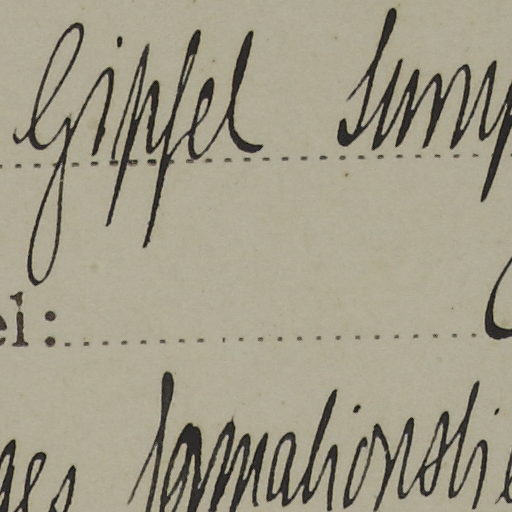 Gipfel Sump
el:
ges formationsti